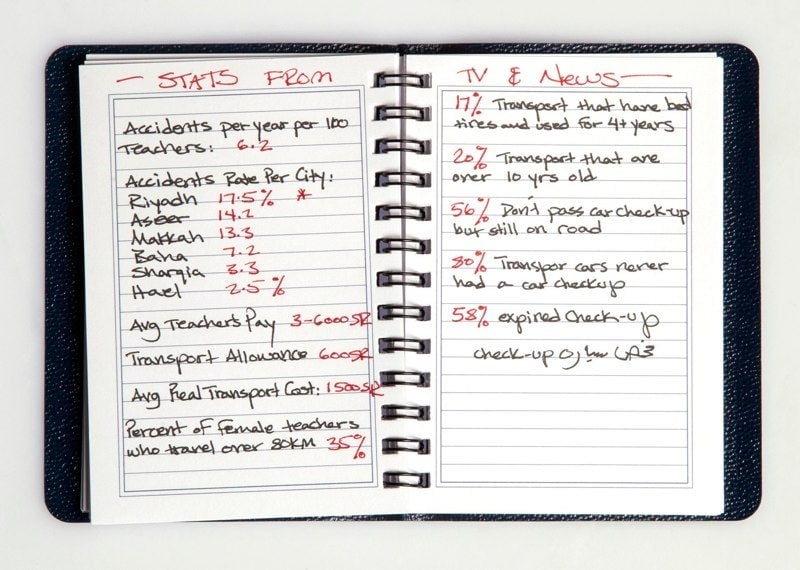 — STATS FROM
Accidents per year per 100
Teachers: 6.2
Accidents Rate Per City:
Riyadh 17.5% *
Aseer 14.2
Makkah 13.3
Baha 7.2
Sharqia 3.3
Hael 2.5%
Avg Teachers Pay 3-6000SR
Transport Allowance 600SR
Avg Real Transport Cost: 1500SR
Percent of female teachers
who travel over 80KM 35%
TV & News —
17% Transport that have bad
tires and used for 4+ years
20% Transport that are
over 10 yrs old
56% Don't pass car check-up
but still on road
80% Transpor cars never
had a car checkup
58% expired check-up
check-up